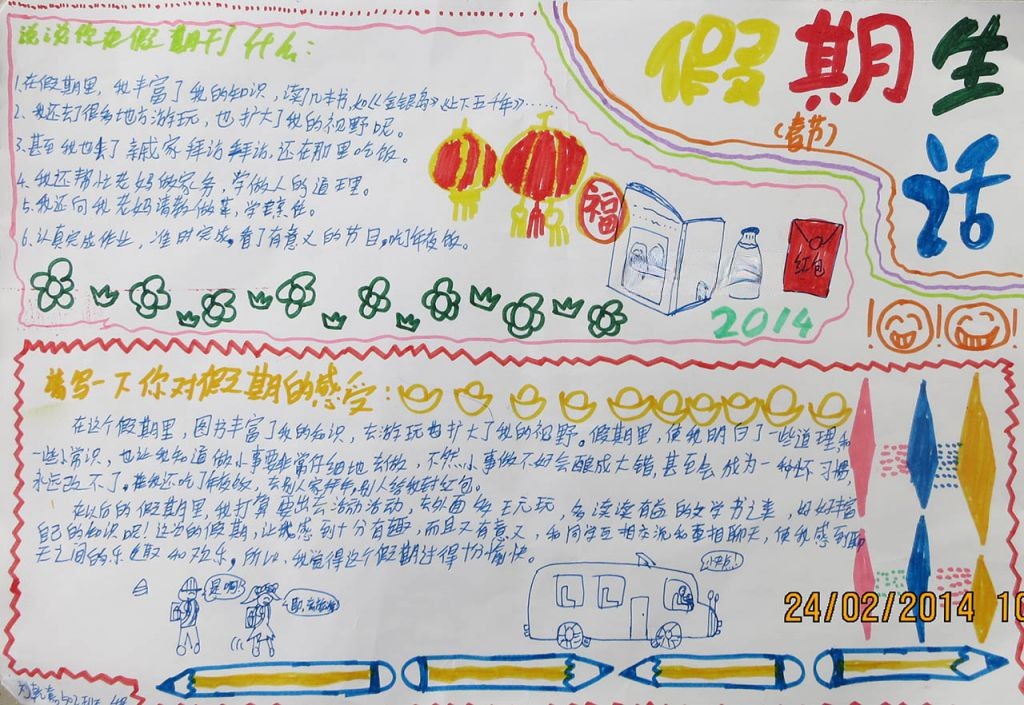 假期生活
(春节)
说说你在假期干了什么：
1.在假期里，我丰富了我的知识，读了几本书，如《金银岛》《上下五千年》……
2、我还去了很多地方游玩，也扩大了我的视野呢。
3.甚至我也去了亲戚家拜访拜访，还在那里吃饭。
4、我还帮忙老妈做家务，学做人的道理。
5、我还向我老妈请教做菜，学烹饪。
6、认真完成作业，准时完成，看了有意义的节目，吃了年夜饭。
福
红包
2014
请写一下你对假期的感受：
在这个假期里，图书丰富了我的知识，去游玩也扩大了我的视野。假期里，使我明白了一些道理和
一些小常识，也让我知道做小事要非常仔细地去做，不然小事做不好会酿成大错，甚至会成为一种坏习惯，
永远改不了。我还吃了年夜饭，去别人家拜年，别人给我封红包。
在以后的假期里，我打算要出去活动活动，去外面多玩玩，多读读有益的文学书之类，好好丰富
自己的知识呢！这次的假期，让我感到十分有趣，而且又有意义，和同学互相交流和互相聊天，使我感到聊
天之间的乐趣和欢乐。所以，我觉得这个假期过得十分愉快。
是啊！
24/02/2014 10